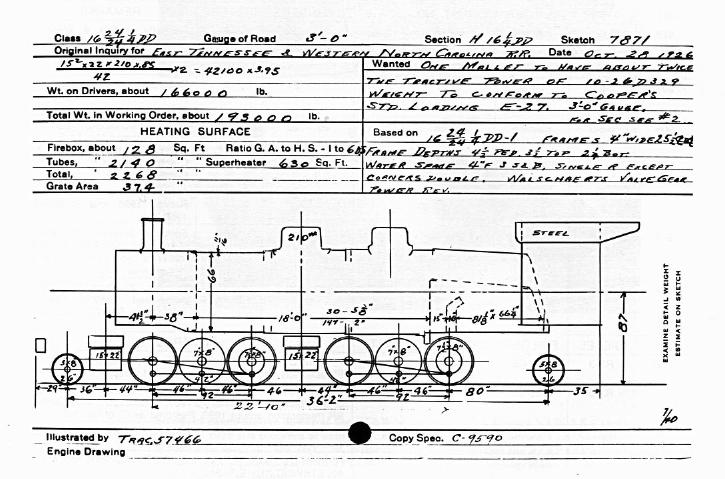 Class 16 24/24 1/4 DD Gauge of Road 3'-0" Section H 16 1/4 DD Sketch 7871
Original Inquiry for EAST TENNESSEE & WESTERN NORTH CAROLINA R.R. Date OCT. 28 1926
15² x 22 x 210 x .85 / 42 x2 = 42100 ÷ 3.95
Wt. on Drivers, about 166000 lb.
Total Wt. in Working Order, about 193000 lb.
HEATING SURFACE
Firebox, about 128 Sq. Ft Ratio G. A. to H. S. - 1 to
Tubes, " 2140 " " Superheater 630 Sq. Ft.
Total, " 2268 "
Grate Area 37.4 "
Wanted ONE MALLET TO HAVE ABOUT TWICE
THE TRACTIVE POWER OF 10-26 D 329
WEIGHT TO CONFORM TO COOPER'S
STD. LOADING E-27. 3'-0" GAUGE.
FOR SEC SEE #2
Based on 16 24/24 1/4 DD-1 FRAMES 4" WIDE
FRAME DEPTHS 4 1/2 PED. 3 1/2 TOP 2 1/2 BOT.
WATER SPACE 4" F 3 S & B, SINGLE R EXCEPT
CORNERS DOUBLE. WALSCHAERTS VALVE GEAR
POWER REV.
STEEL
210
66
41 1/2" 38" 18'0" 15"
30 - 5 3/8
147 - 2"
87
15x22 7"x8" 15x22 7"x8"
5x8 2'6" 42" 5x8 2'6
29" 36" 44" 46" 46" 46 44" 46 46 80" 35
92 36'-2" 92
22'-10"
EXAMINE DETAIL WEIGHT
ESTIMATE ON SKETCH
Illustrated by TRAC. 57466 Copy Spec. C-9590
Engine Drawing